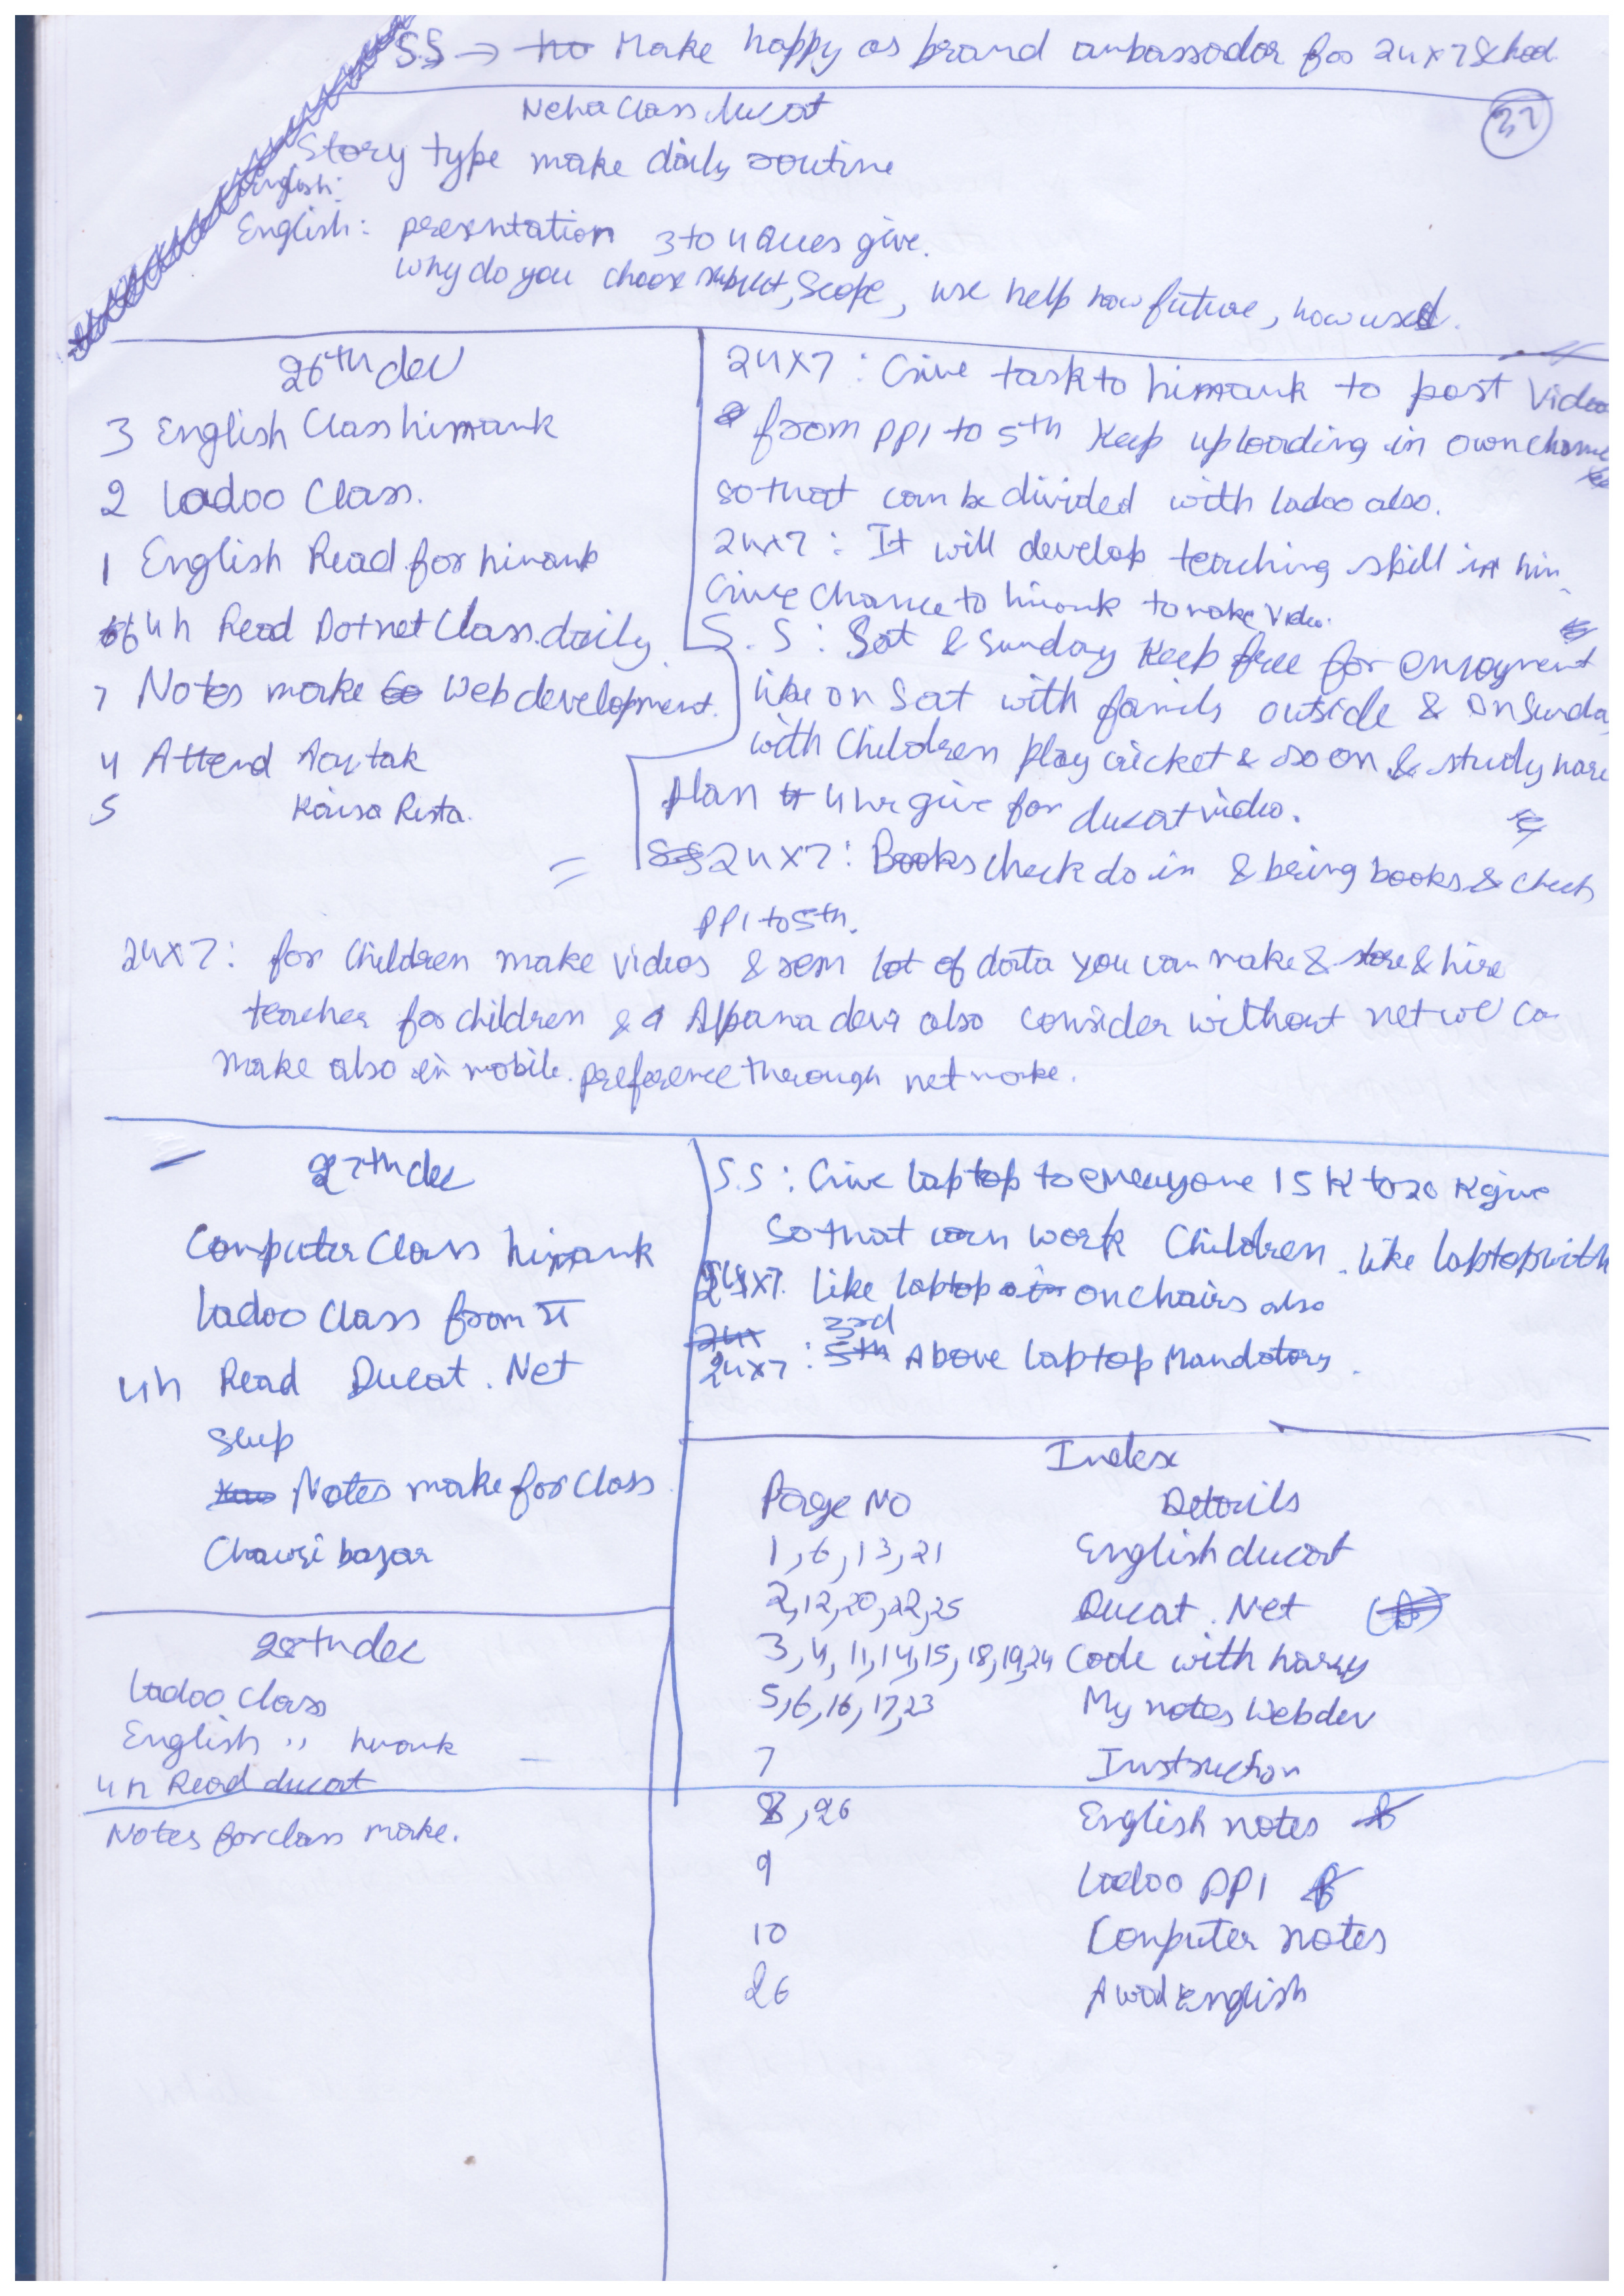 S.S → Make happy as brand ambassador for 24x7 School
32
Neha Class ducat
Story type make daily routine
English:
English: presentation 3 to 4 Ques give.
why do you choose subject, Scope, use help how future, how used.
26th dec
3 English Class himank
2 Ladoo Class.
1 English Read for himank
6 4h Read Dotnet Class. daily
7 Notes make Web development.
4 Attend Aaj tak
5 Kaisa Rista.
24x7: Give task to himank to post Video
from PP1 to 5th Keep uploading in own
so that can be divided with Ladoo also.
24x7: It will develop teaching skill in him
Give Chance to himank to make Video.
S.S: Sat & Sunday Keep free for enjoyment
like on Sat with family outside & on Sunda
with Children play cricket & so on & study
plan 4 hr give for ducat video.
24x7: Books check do in & bring books & check
PP1 to 5th.
24x7: for Children make videos & lot of data you can make & store & hire
teacher for children & Alpana devi also consider without net we ca
make also in mobile. preference through net make.
27th dec
Computer Class himank
Ladoo Class from
4h Read Ducat . Net
Sleep
Notes make for Class
bazar
S.S: Give laptop to everyone 15K to 20 K give
So that can work Children. like laptop with
24x7. like laptop on chairs also
24x7 : 3rd Above laptop Mandatory.
28th dec
Ladoo Class
English ,, himank
4h Read ducat
Notes for class make.
Index
Page No Details
1,6,13,21 English ducat
2,12,20,22,25 Ducat . Net
3,4,11,14,15,18,19,24 Code with harry
5,6,16,17,23 My notes Webdev
7 Instruction
8,26 English notes
9 Ladoo PP1
10 Computer notes
26 A word English